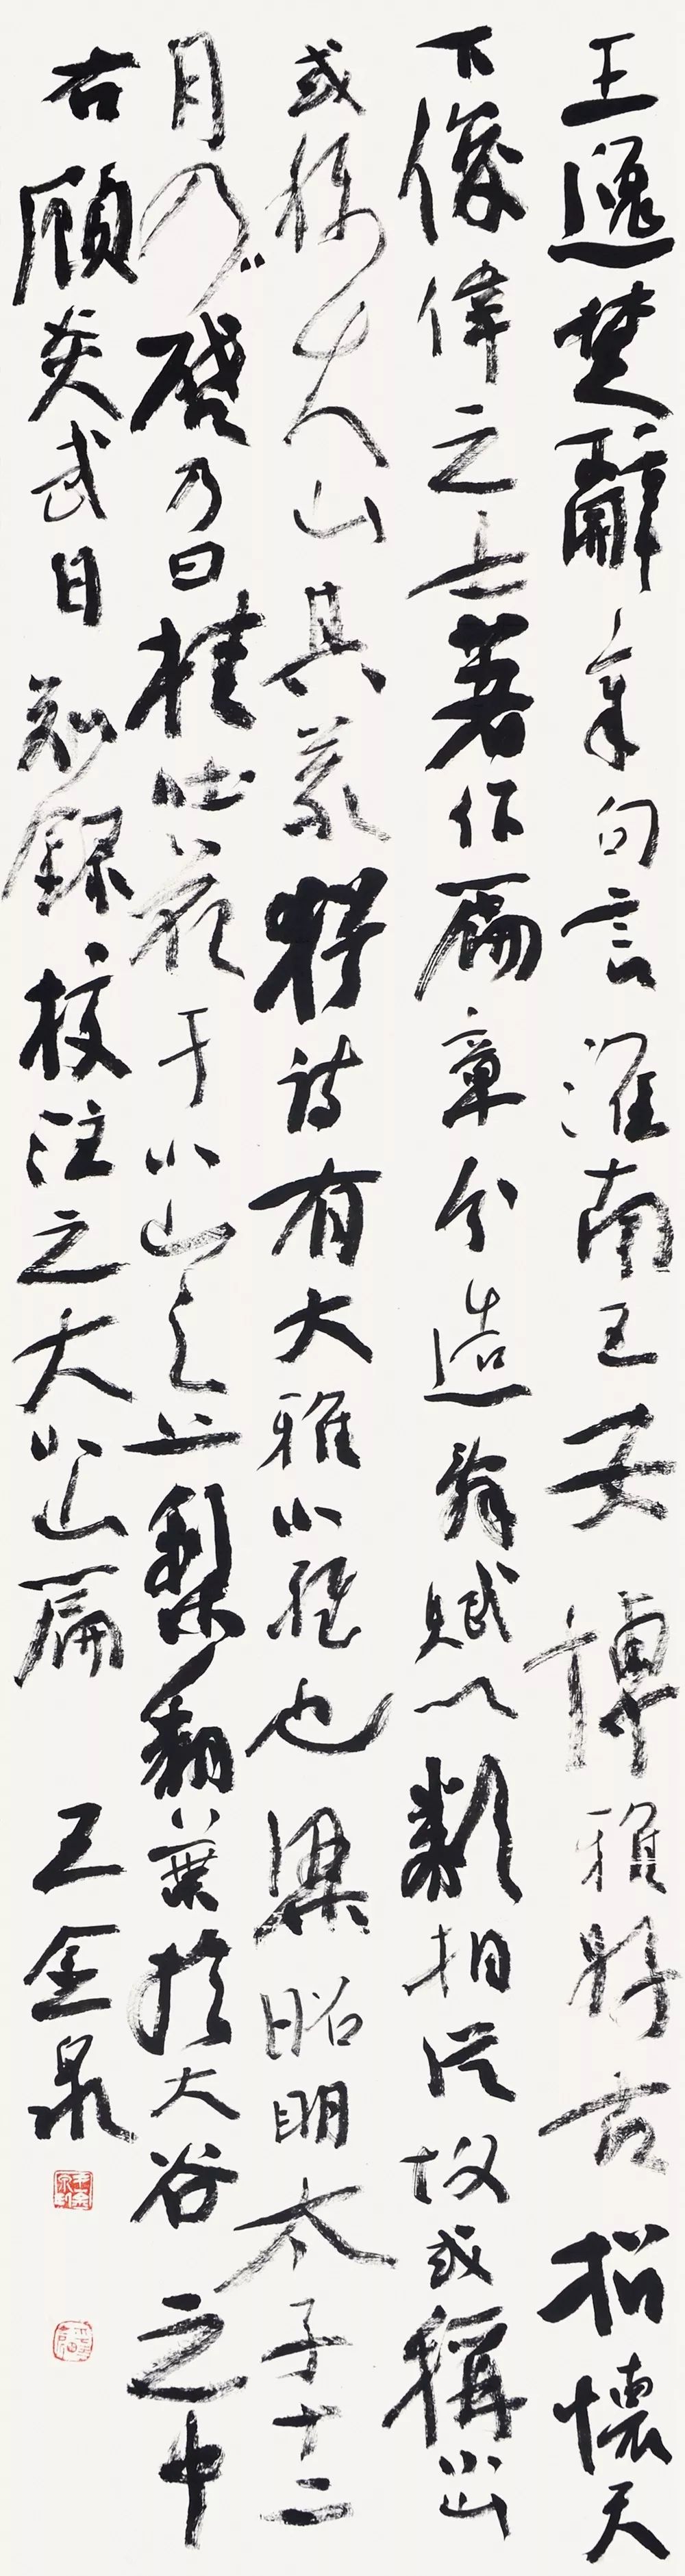 王逸楚辭章句言淮南王安博雅好古招懷天
下俊偉之士著作篇章分造辭賦以類相從故或稱小山
或称大山其義猶詩有大雅小雅也梁昭明太子十二
月乃啓乃曰桂吐花于小山之上梨翻葉於大谷之中
右顧炎武日知錄校注之大小山篇 王金泉